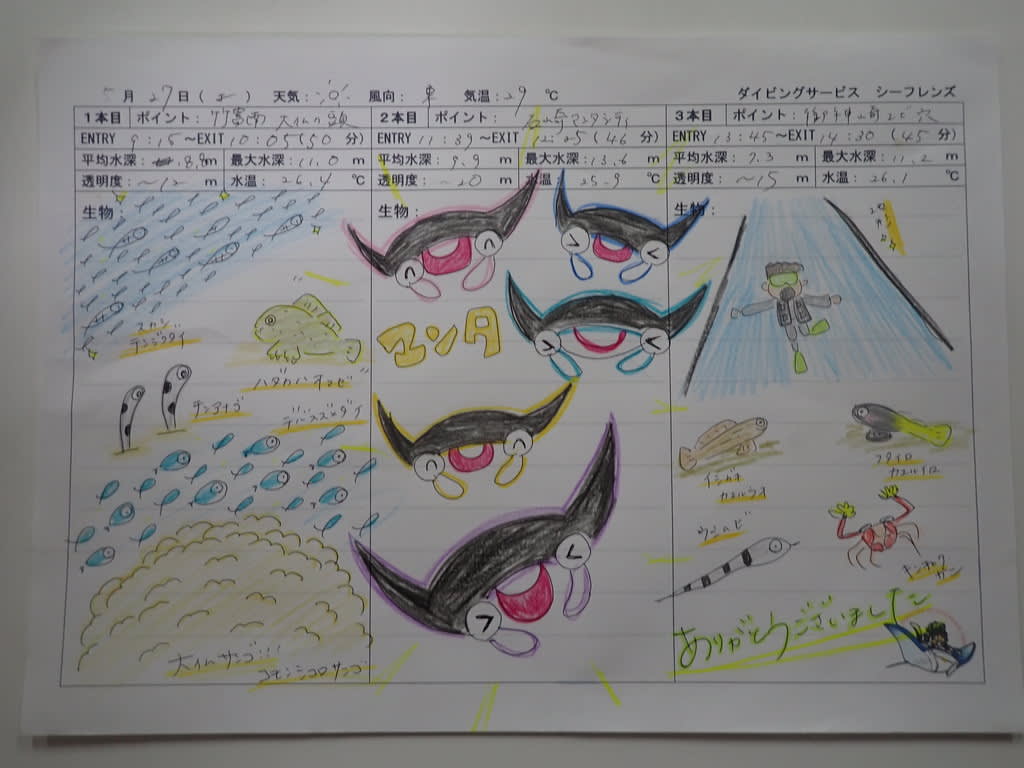 月 27日( ) 天気: 風向: 東 気温:29 ℃ ダイビングサービス シーフレンズ
1本目 ポイント: 竹富南
ENTRY 9:15~EXIT 10:05(50 分)
平均水深: 8.9m 最大水深:11.0 m
透明度: ~12 m 水温: 26.4 ℃
生物:
スカシ
テンジクダイ
ハダカハオコゼ
チンアナゴ
デバスズメダイ
コモンシコロサンゴ
2本目 ポイント: 石崎マンタシティ
ENTRY 11:39~EXIT 12:25(46 分)
平均水深: 9.9 m 最大水深:13.6 m
透明度: ~20 m 水温: 25.9 ℃
生物:
マンタ
3本目 ポイント: 御神崎
ENTRY 13:45~EXIT 14:30 (45分)
平均水深: 7.3 m 最大水深:11.2 m
透明度: ~15 m 水温: 26.1 ℃
生物:
イシガキ
カエルウオ
フタイロ
カエルウオ
キンチャク
ガニ
ありがとうございました